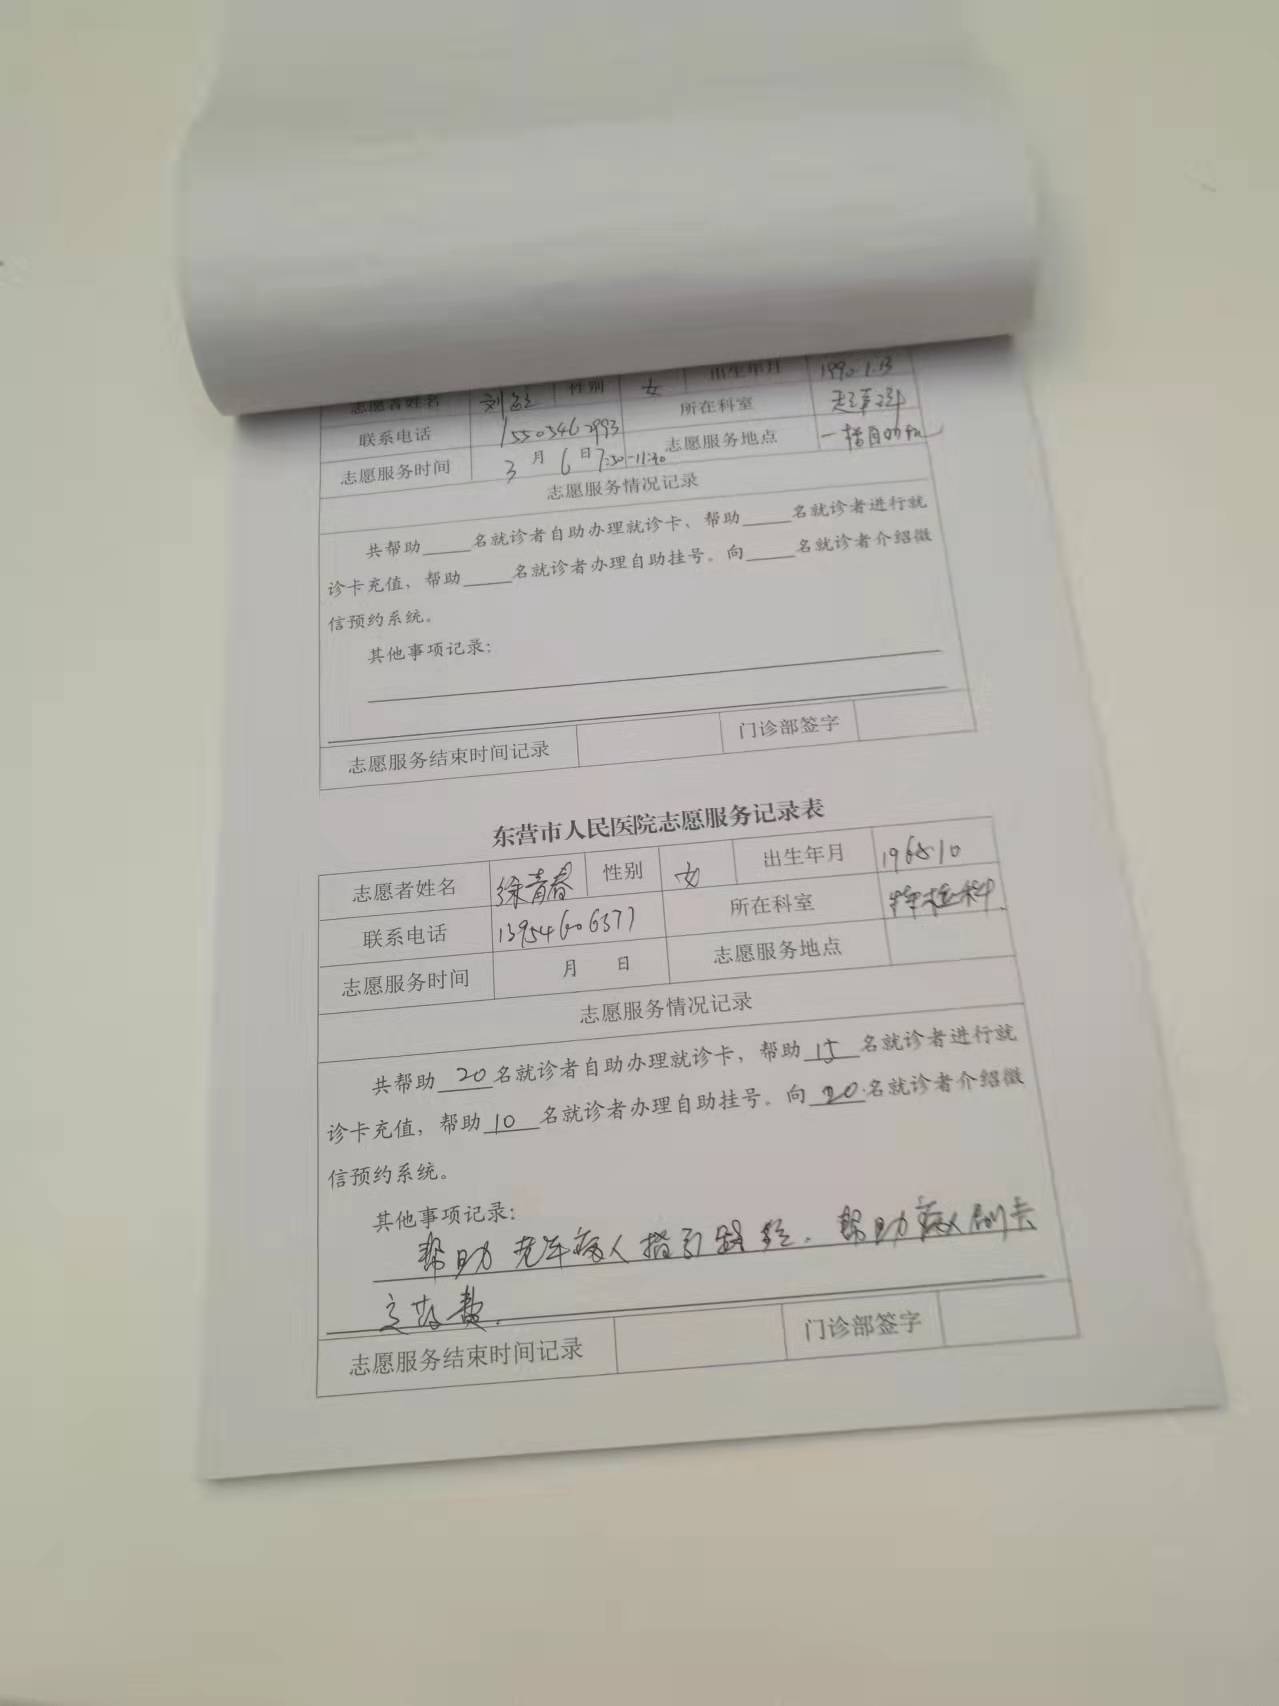 志愿者姓名 刘 性别 女 出生年月 1990.1.13
联系电话 15503462993 所在科室
志愿服务时间 3月6日7:30-11:30 志愿服务地点 一楼自助机
志愿服务情况记录
共帮助____名就诊者自助办理就诊卡、帮助____名就诊者进行就
诊卡充值，帮助____名就诊者办理自助挂号。向____名就诊者介绍微
信预约系统。
其他事项记录：
志愿服务结束时间记录 门诊部签字
东营市人民医院志愿服务记录表
志愿者姓名 徐青春 性别 女 出生年月 1965.10
联系电话 13954606377 所在科室 特检科.
志愿服务时间 月 日 志愿服务地点
志愿服务情况记录
共帮助 20 名就诊者自助办理就诊卡，帮助 15 名就诊者进行就
诊卡充值，帮助 10 名就诊者办理自助挂号。向 20 名就诊者介绍微
信预约系统。
其他事项记录：
帮助老年病人指引路径. 帮助病人刷卡
交费.
志愿服务结束时间记录 门诊部签字